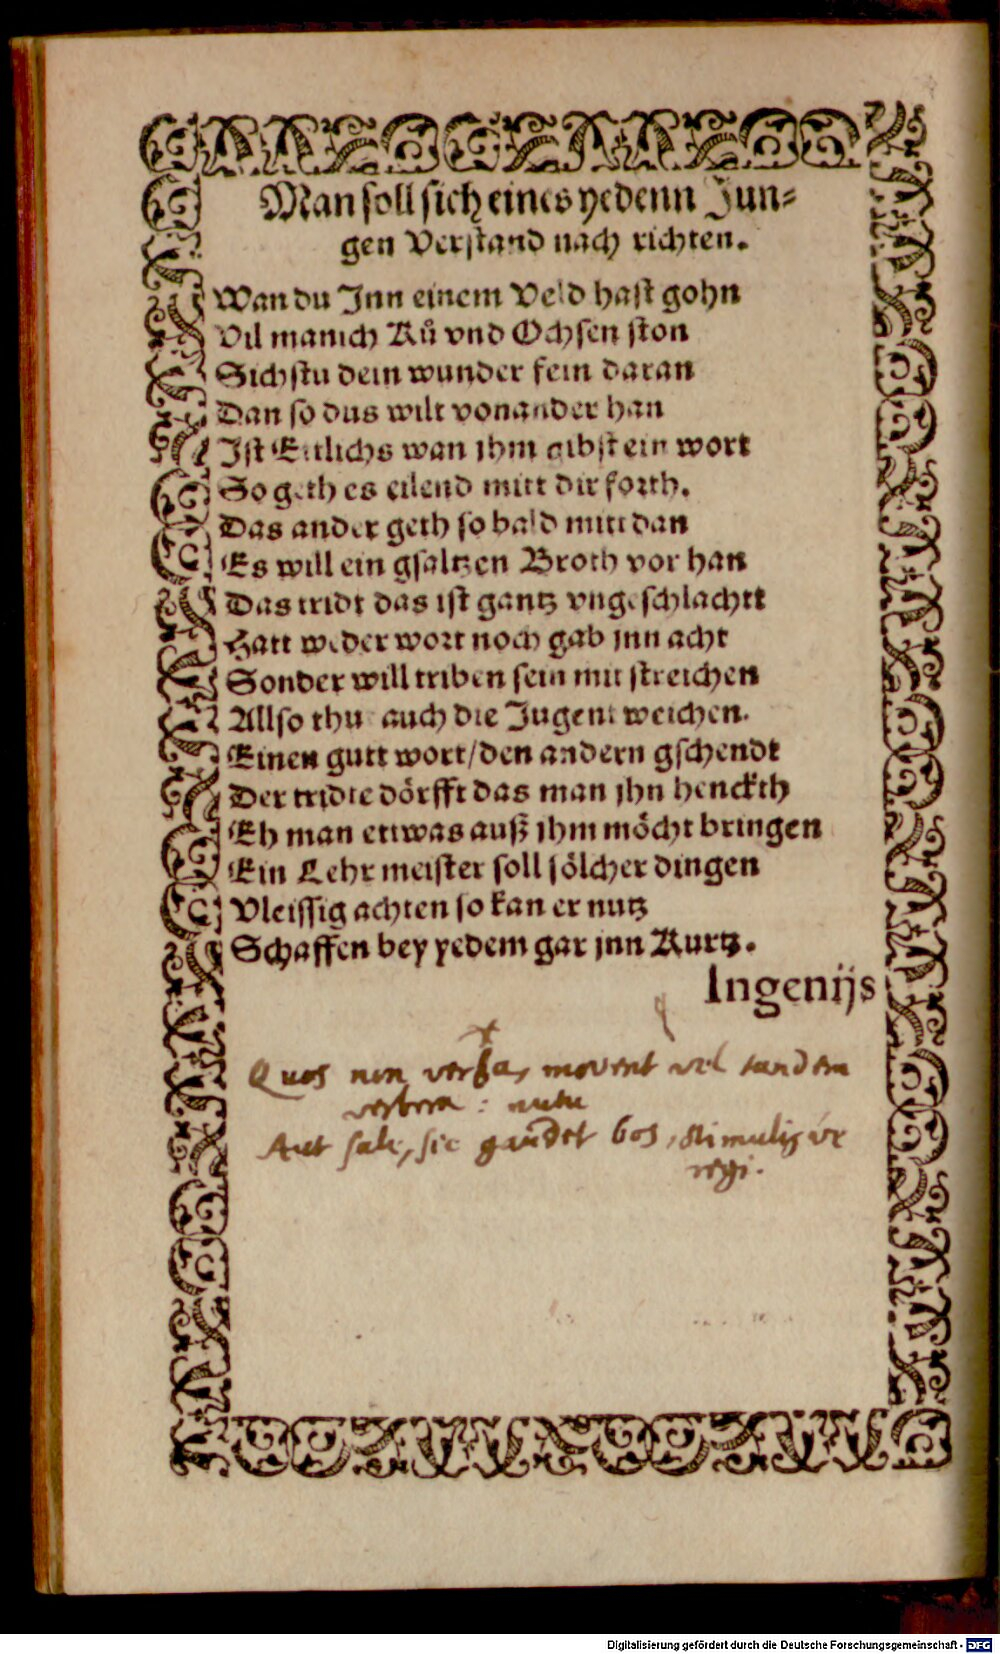 Man soll sich eines yedenn Jun-
gen Verstand nach richten.
Wan du Inn einem Veld hast gohn
Vil manich Ků vnd Ochsen ston
Sichstu dein wunder fein daran
Dan so dus wilt vonander han
Ist Ettlichs wan ihm gibst ein wort
So geth es eilend mitt dir forth.
Das ander geth so bald mitt dan
Es will ein gsaltzen Broth vor han
Das tridt das ist gantz vngeschlachtt
Hatt weder wort noch gab jnn acht
Sonder will triben sein mit streichen
Allso thu auch die Jugent weichen.
Einen gutt wort/den andern gschendt
Der tridte dörfft das man jhn henckth
Eh man ettwas auß ihm möcht bringen
Ein Lehr meister soll sölcher dingen
Vleissig achten so kan er nutz
Schaffen bey yedem gar jnn Kurtz.
Ingenijs
Quos non verba, movent vel tandem
verbera :
Aut sale, sic gaudet bos, stimulis ve
regi.
Digitalisierung gefördert durch die Deutsche Forschungsgemeinschaft - DFG